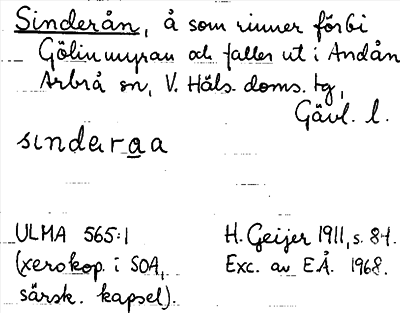 Sinderån, å som rinner förbi
Gölinmyran och faller ut i Andån
Arbrå sn, V. Häls. doms. tg,
Gävl. l.
sındaraa
ULMA 565:1
(xerokop. i SOA,
särsk. kapsel).
H. Geijer 1911, s. 84.
Exc. av E.Å. 1968.